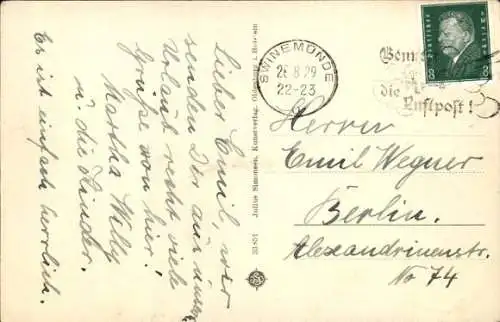 Lieber Emil, wir
senden Dir aus dem
Urlaub recht viele
Grüße von hier!
Martha Willy
u. die Kinder.
Es ist einfach herrlich.
Julius Simonsen, Kunstverlag, Oldenburg i. Holstein
SWINEMÜNDE
8.29
22-23
die
Luftpost!
DEUTSCHES REICH
8 8
Herrn
Emil Wegner
Berlin.
Alexandrinenstr.
No 74